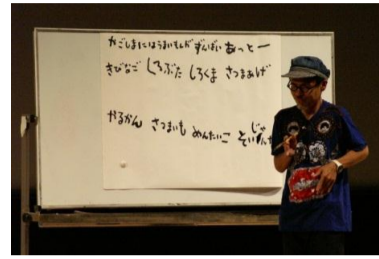 かごしまにはうまいもんがずんばい あっとー
きびなご しろぶた しろくま さつまあげ
かるかん さつまいも めんたいこ とぃじゃん